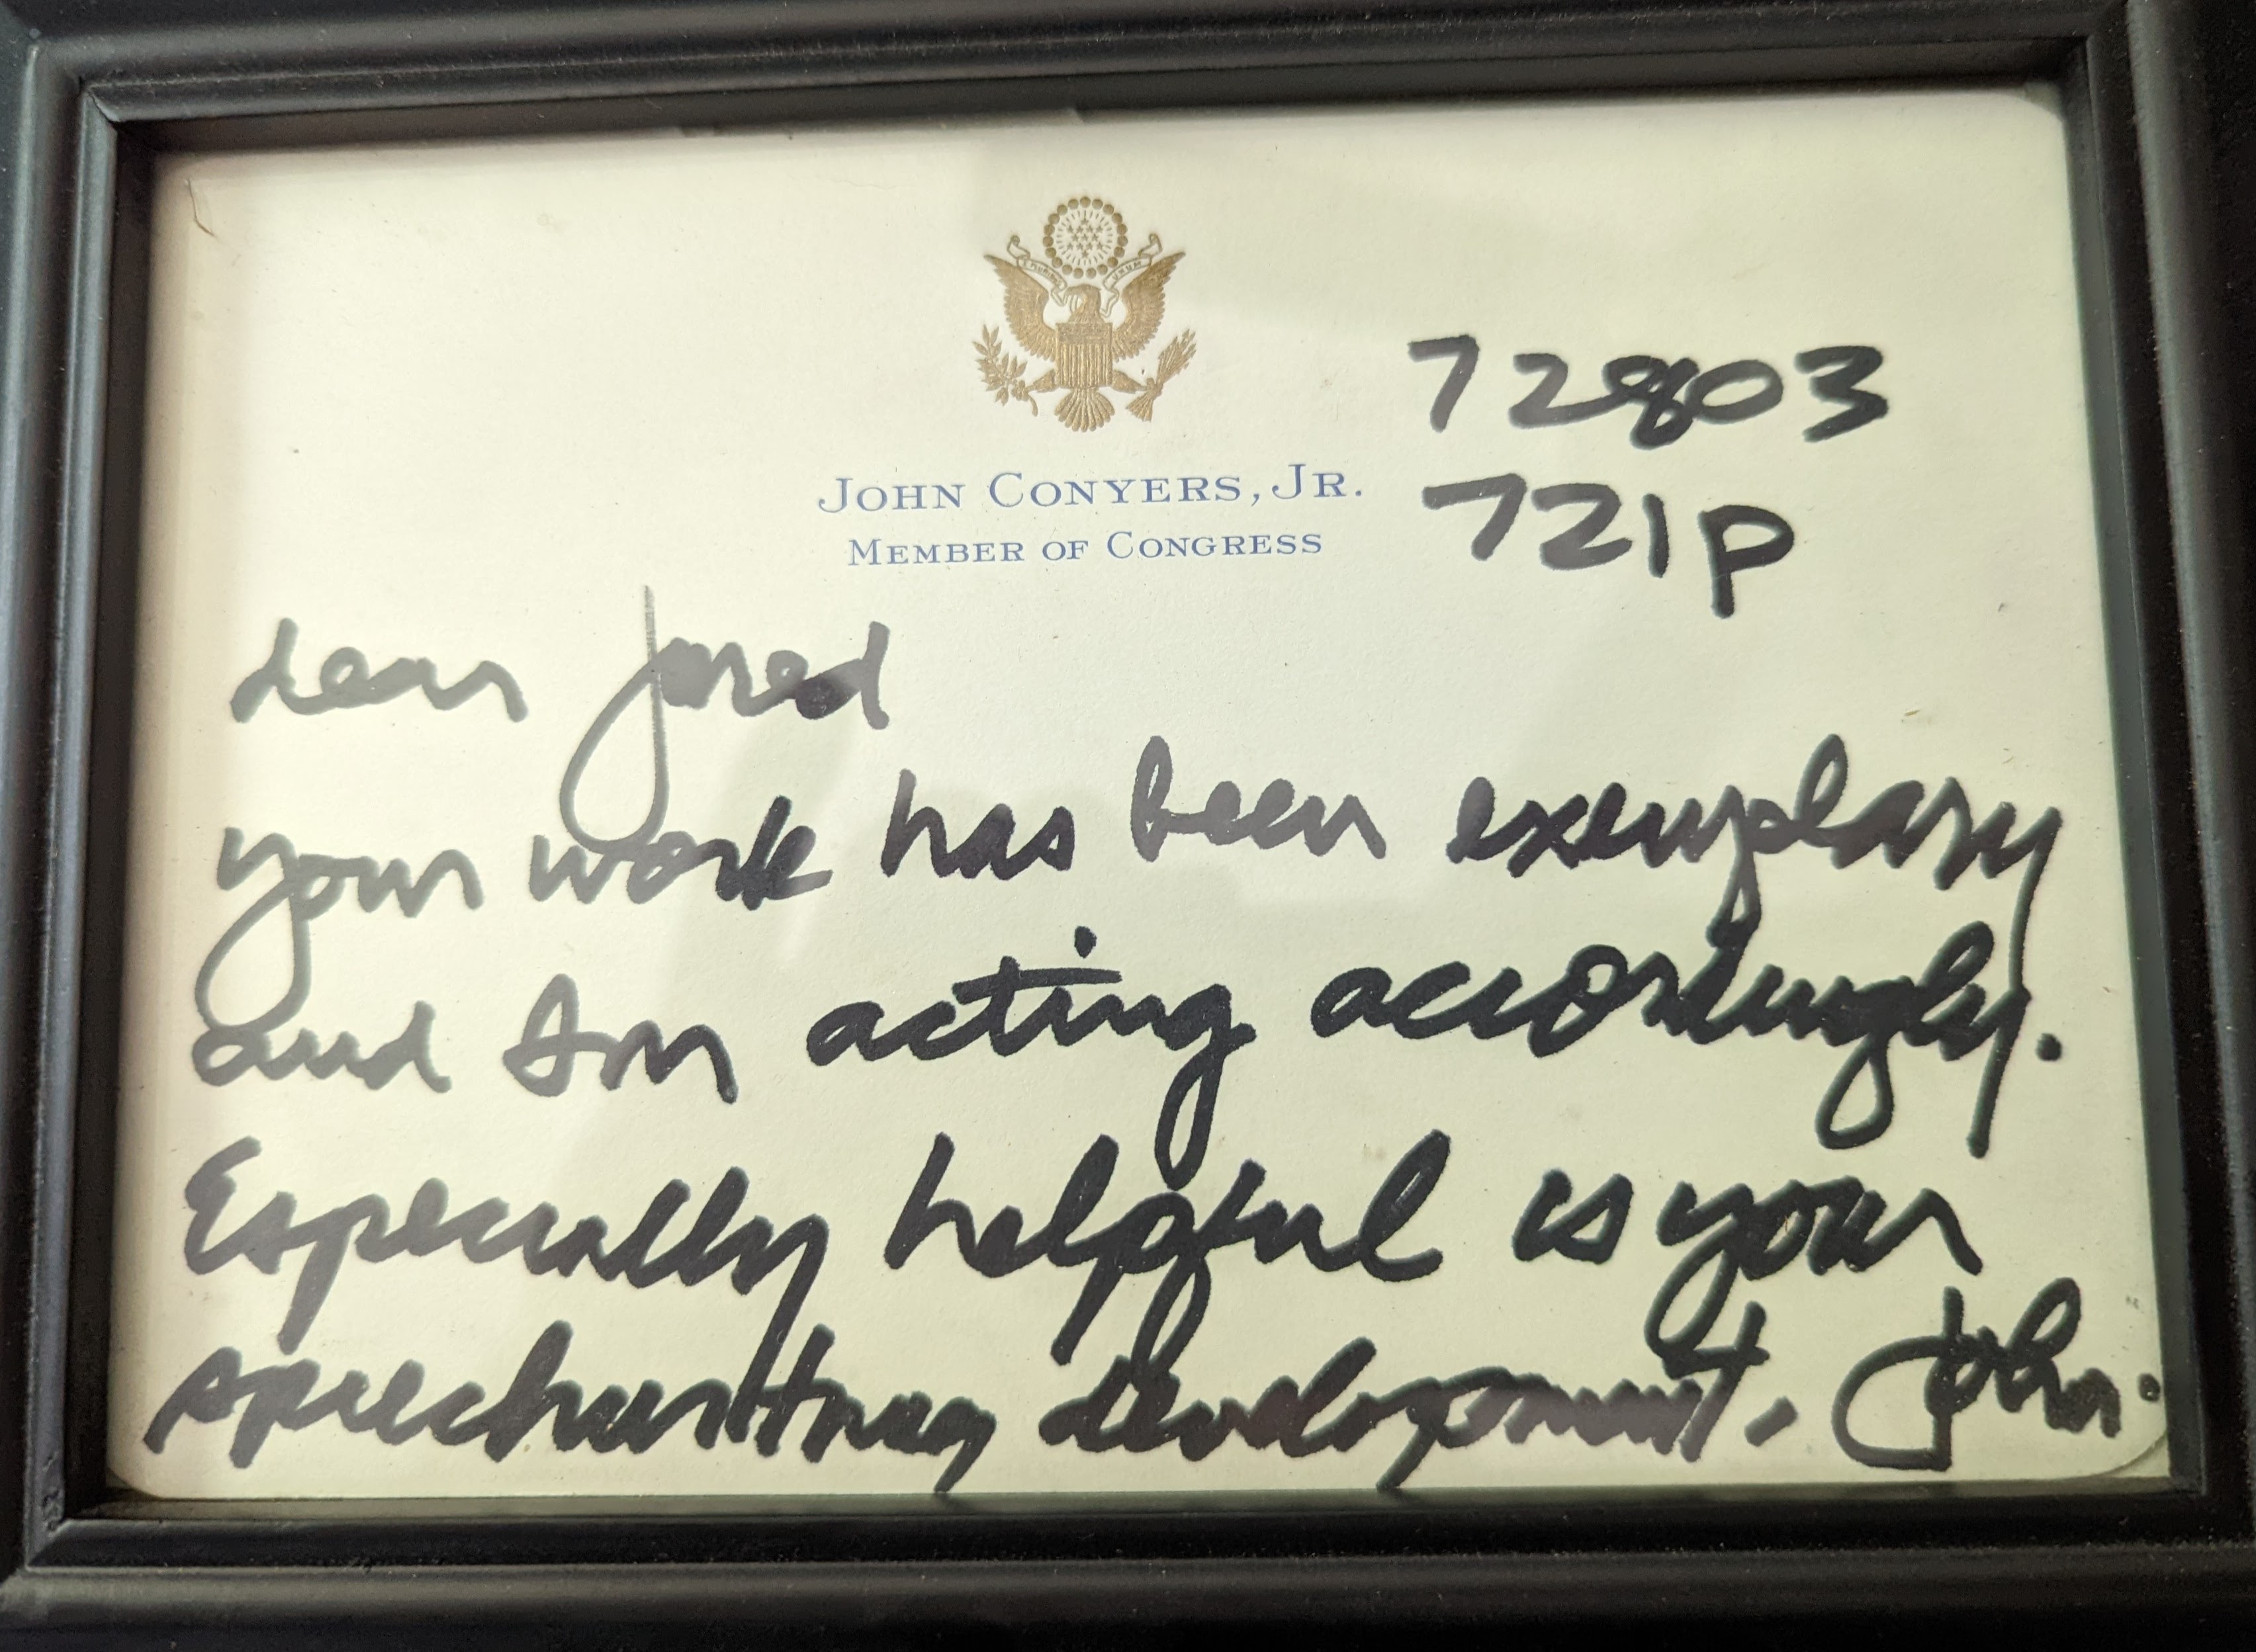 JOHN CONYERS, JR.
MEMBER OF CONGRESS
72803
721p
dear Jared
your work has been exemplary
and Am acting accordingly.
Especially helpful is your
speechwriting development. John.